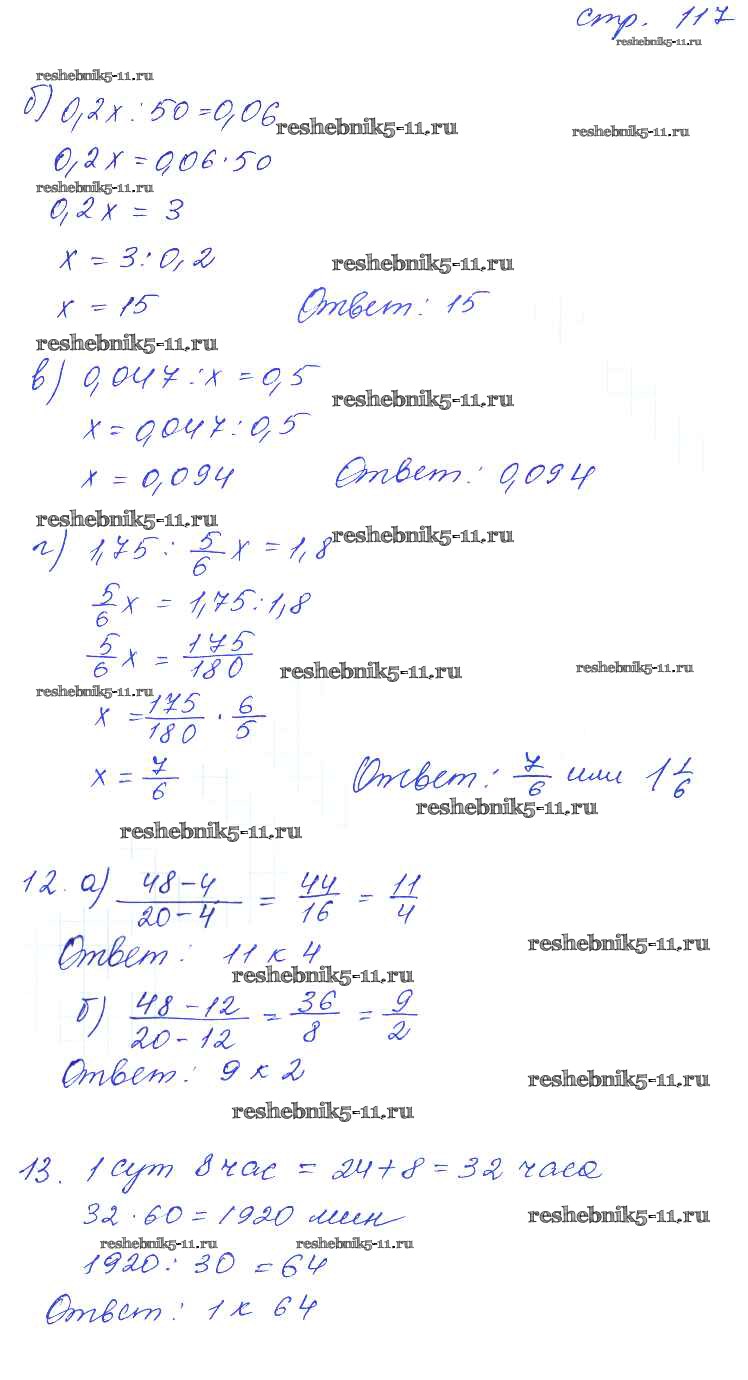 стр. 117
reshebnik5-11.ru
reshebnik5-11.ru
б) 0,2x : 50 = 0,06
reshebnik5-11.ru
reshebnik5-11.ru
0,2x = 0,06 · 50
reshebnik5-11.ru
0,2x = 3
x = 3 : 0,2
reshebnik5-11.ru
x = 15 Ответ: 15
reshebnik5-11.ru
в) 0,047 : x = 0,5
reshebnik5-11.ru
x = 0,047 : 0,5
x = 0,094 Ответ: 0,094
reshebnik5-11.ru
reshebnik5-11.ru
г) 1,75 : 5/6 x = 1,8
5/6 x = 1,75 : 1,8
5/6 x = 175/180
reshebnik5-11.ru
reshebnik5-11.ru
reshebnik5-11.ru
x = 175/180 · 6/5
x = 7/6 Ответ: 7/6 или 1 1/6
reshebnik5-11.ru
reshebnik5-11.ru
12. а) 48-4/20-4 = 44/16 = 11/4
Ответ: 11 к 4
reshebnik5-11.ru
reshebnik5-11.ru
б) 48-12/20-12 = 36/8 = 9/2
Ответ: 9 к 2
reshebnik5-11.ru
reshebnik5-11.ru
13. 1 сут 8 час = 24+8 = 32 часа
32 · 60 = 1920 мин
reshebnik5-11.ru
reshebnik5-11.ru
reshebnik5-11.ru
1920 : 30 = 64
Ответ: 1 к 64